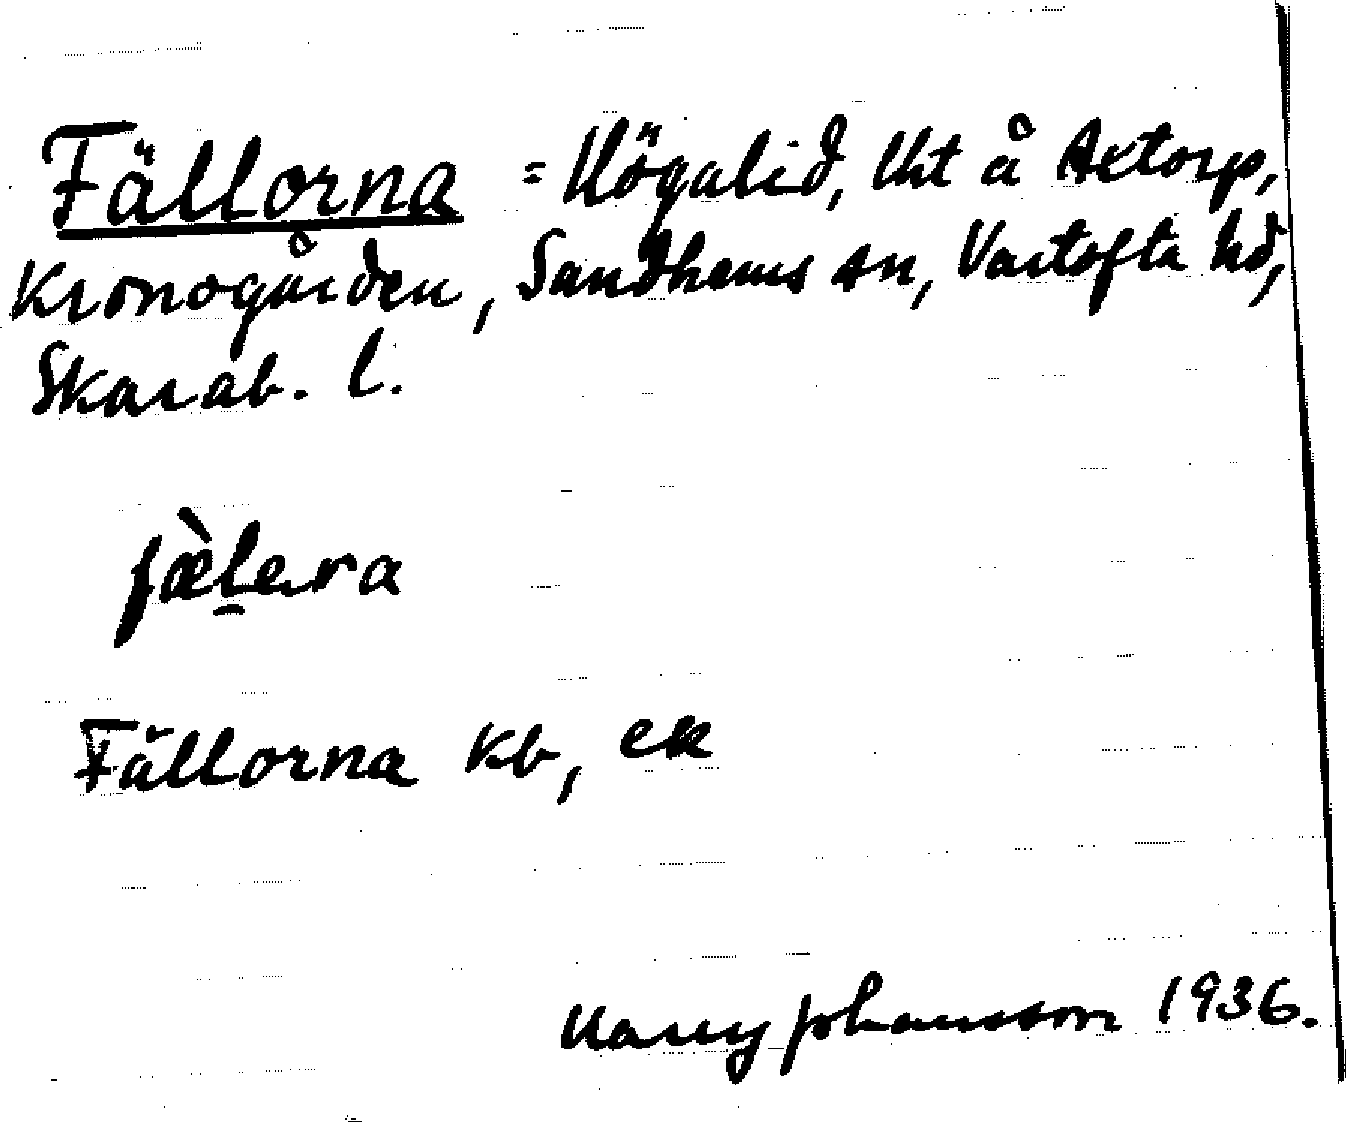 Fällorna = Högalid, lht å Axtorp,
Kronogården, Sandhems sn, Vartofta hd,
Skarab. l.
fæ̀l̠e̠ra
Fällorna kb, ek
Harry Johansson 1936.